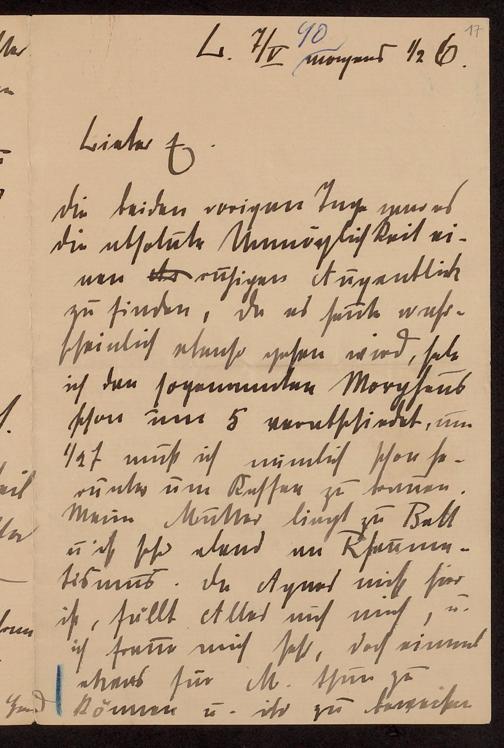 17
L. 7/V 90
morgens 1/2 6.
Lieber
die beiden vorigen Tage war es
die absolute Unmöglichkeit ei-
nen ruhigen Augenblick
zu finden, da es heute wahr-
scheinlich ebenso gehen wird, habe
ich den sogenannten Morpheus
schon um 5 verabschiedet, um
1/2 7 muß ich nämlich schon he-
runter um Kaffee zu brauen.
Meine Mutter liegt zu Bett
u. ist sehr elend an Rheuma-
tismus. Da Agnes nicht hier
ist, fällt Alles auf mich, u.
ich freue mich sehr, doch einmal
etwas für M. thun zu
können u. ihr zu beweisen